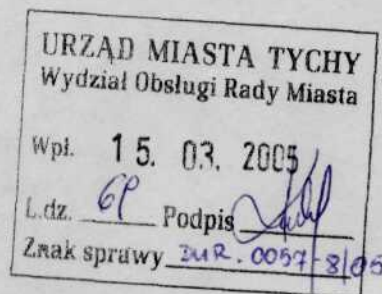 URZĄD MIASTA TYCHY
Wydział Obsługi Rady Miasta
Wpł. 15. 03. 2005
L.dz. Podpis
Znak sprawy DUR. 0057-8/05